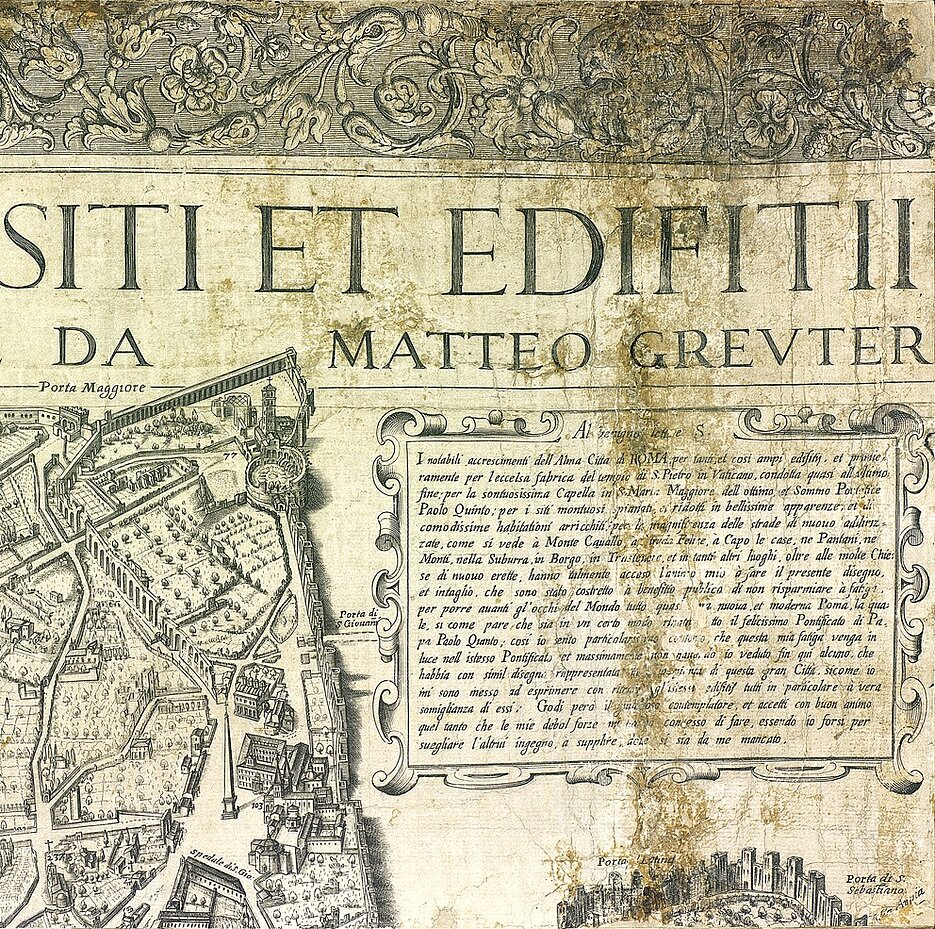 SITI ET EDIFITII
DA MATTEO GREVTER
Porta Maggiore
77
Al benigno lettore S
I notabili accrescimenti dell'Alma Citta di ROMA, per tanti, et cosi ampi edifitij, et prime
ramente per l'eccelsa fabrica del tempio di S. Pietro in Vaticano, condotta quasi all'ultimo
fine, per la sontuosissima Capella in S. Maria Maggiore dell'ottimo, et Sommo Pontefice
Paolo Quinto, per i siti montuosi spianati, et ridotti in bellissime apparenze, et di
comodissime habitationi arricchiti, per la magnificenza delle strade di nuouo addiriz-
zate, come si vede à Monte Cauallo, a Capo le case, ne Pantani, ne
Monti, nella Suburra, in Borgo, in Trasteuere, et in tanti altri luoghi, oltre alle molte Chie:
se di nuouo erette, hanno talmente acceso l'animo mio à fare il presente disegno,
et intaglio, che sono stato costretto à benefitio publico di non risparmiare a fatiga
per porre auanti gl'occhi del Mondo tutto quasi nuoua, et moderna Roma, la qua
le, si come pare, che sia in vn certo modo rinata sotto il felicissimo Pontificato di Pa,
pa Paolo Quinto, cosi io sento particolarissimo contento, che questa mia fatiga venga in
luce nell'istesso Pontificato, et massimamente non hauendo io veduto fin qui alcuno, che
habbia con simil disegno rappresentata di questa gran Città, sicome io
mi sono messo ad esprimere con edifitij tutti in particolare à vera
somiglianza di essi. Godi però il contemplatore, et accetti con buon animo
quel tanto che le mie debol forze m'hanno concesso di fare, essendo io forsi per
suegliare l'altrui ingegno, a supplire, doue si sia da me mancato.
Porta di
S. Giouanni
103
Spedale di S. Gio
Porta Latina
Porta di S.
Sebastiano
Via Appia